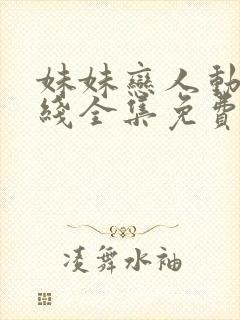 妹妹戀人動
綫全集免費
凌舞水袖